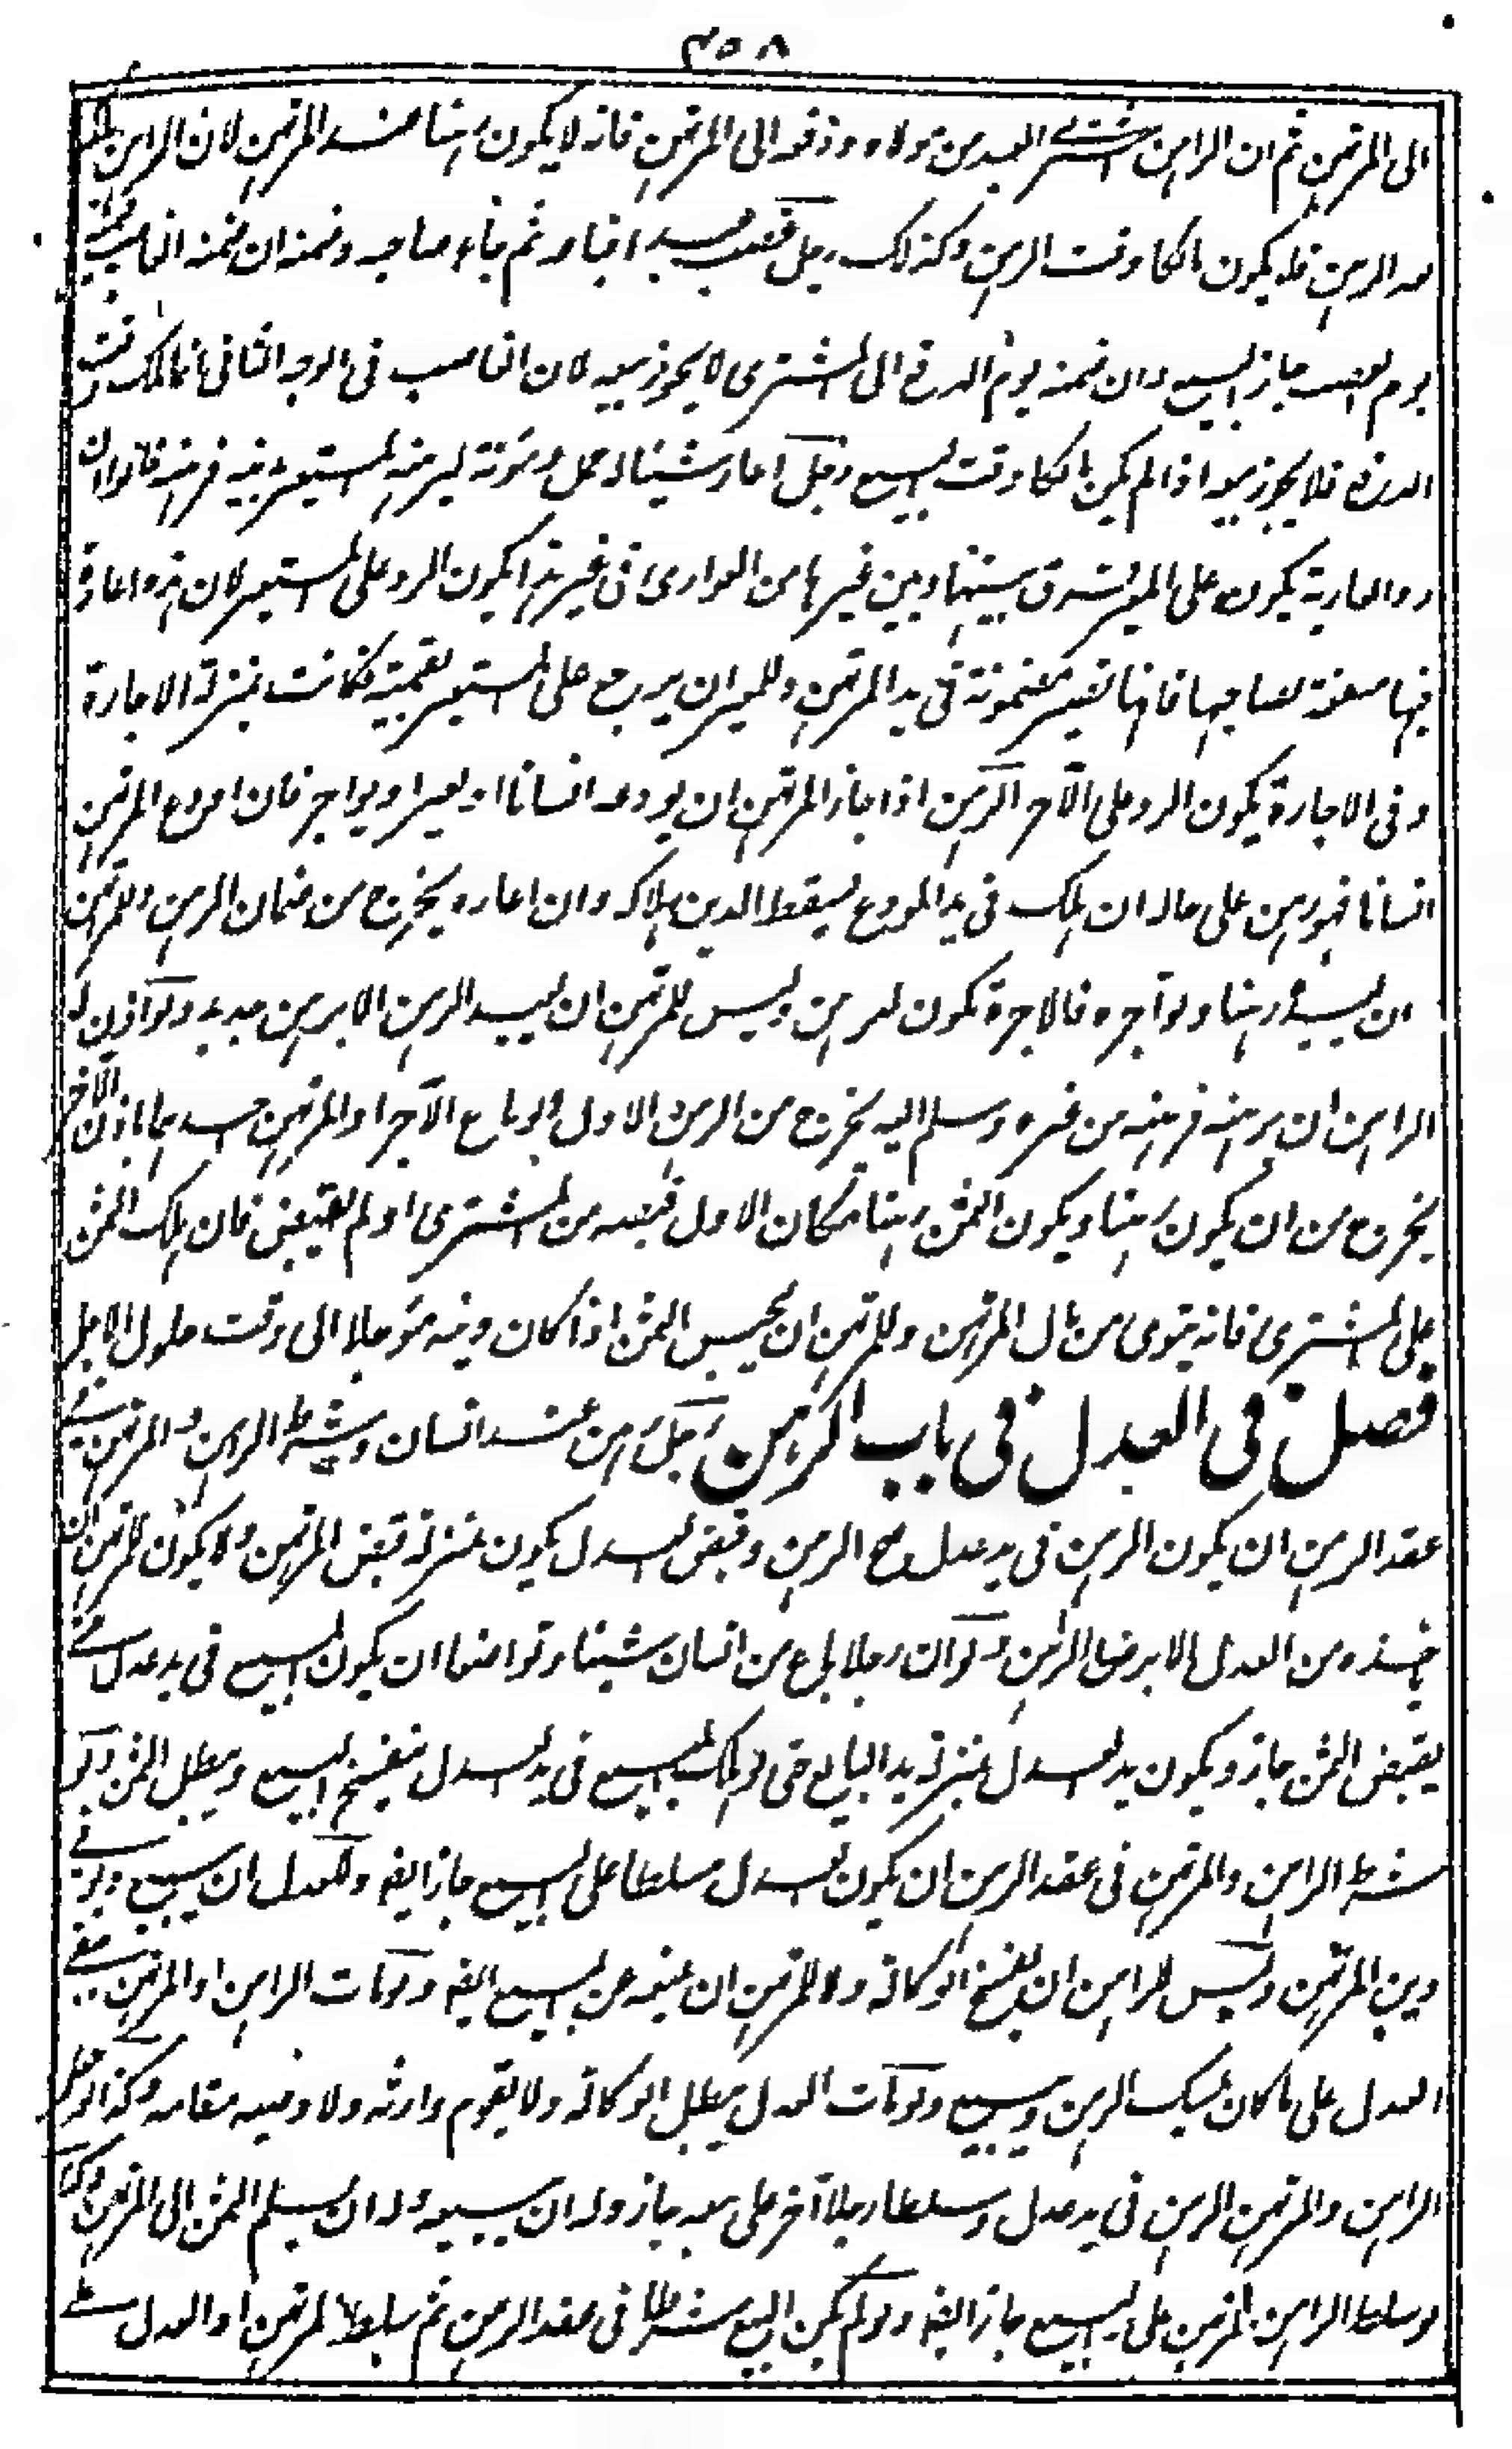 ٣٥٨
الى المرتهن ثم ان الراهن اشترى العبد من مولاه ودفعه الى المرتهن فانه لا يكون رهنا عند المرتهن لان الراهن
عقد الرهن فلا يكون مالكا وقت الرهن وكذلك رجل غصب عبدا فباعه ثم جاء صاحبه وضمنه ان ضمنه الغاصب قيمته
يوم الغصب جاز البيع وان ضمنه يوم الدفع الى المشترى لا يجوز بيعه لان الغاصب فى الوجه الثانى انما ملك وقت
الدفع فلا يجوز بيعه اذا لم يكن مالكا وقت البيع رجل اعار شيئا له حمل ومؤنة ليرهنه المستعير بدينه فرهنه قالوا ان
رد العارية يكون على المعير فرق بينها وبين غيرها من العوارى فى غير هذا يكون الرد على المستعير لان هذه اعارة
فيها منفعة لصاحبها فانها تصير مضمونة فى يد المرتهن وللمعير ان يرجع على المستعير بقيمته فكانت بمنزلة الاجارة
وفى الاجارة يكون الرد على الآجر الراهن اذا اجاز المرتهن ان يودعه انسانا او يعير او يواجر فان اودع المرتهن
انسانا فهو رهن على حاله ان هلك فى يد المودع يسقط الدين بهلاكه وان اعاره يخرج من ضمان الرهن وللمرتهن
ان يعيده رهنا ولو آجره فالاجرة تكون للراهن وليس للمرتهن ان يعيد الرهن الا برهن جديد ولو اذن له
الراهن ان يرهنه فرهنه من غيره وسلم اليه يخرج من الرهن الاول ولو باع الآجر او المرتهن احدهما باذن الآخر
يخرج من ان يكون رهنا ويكون الثمن رهنا مكان الاول قبضه من المشترى او لم يقبض فان هلك الثمن
على المشترى فانه يتوى من مال المرتهن وللمرتهن ان يحبس الثمن اذا كان دينه مؤجلا الى وقت حلول الاجل
فصل فى العدل فى باب الرهن رجل رهن عند انسان وشرط الراهن والمرتهن فى
عقد الرهن ان يكون الرهن فى يد عدل صح الرهن وقبض العدل يكون بمنزلة قبض المرتهن ولا يكون للمرتهن ان
ياخذه من العدل الا برضا الراهن ولو ان رجلا باع من انسان شيئا وتواضعا ان يكون المبيع فى يد عدل حتى
يقبض الثمن جاز ويكون يد العدل بمنزلة يد البايع حتى لو هلك المبيع فى يد العدل ينفسخ البيع ويبطل الثمن ولو
شرط الراهن والمرتهن فى عقد الرهن ان يكون العدل مسلطا على البيع جاز ايضا وللعدل ان يبيع ويوفى
دين المرتهن وليس للراهن ان يفسخ الوكالة ولا للمرتهن ان يمنعه عن البيع ايضا ولو مات الراهن او المرتهن يبقى
العدل على ما كان يمسك الرهن ويبيع ولو مات العدل يبطل الوكالة ولا يقوم وارثه ولا وصيه مقامه وكذا لو جعل
الراهن والمرتهن الرهن فى يد عدل وسلطا رجلا آخر على بيعه جاز وله ان يبيعه وله ان يسلم الثمن الى المرتهن وكذا
لو سلط الراهن المرتهن على البيع جاز ايضا ولو لم يكن البيع شرطا فى عقد الرهن ثم سلط المرتهن او العدل على